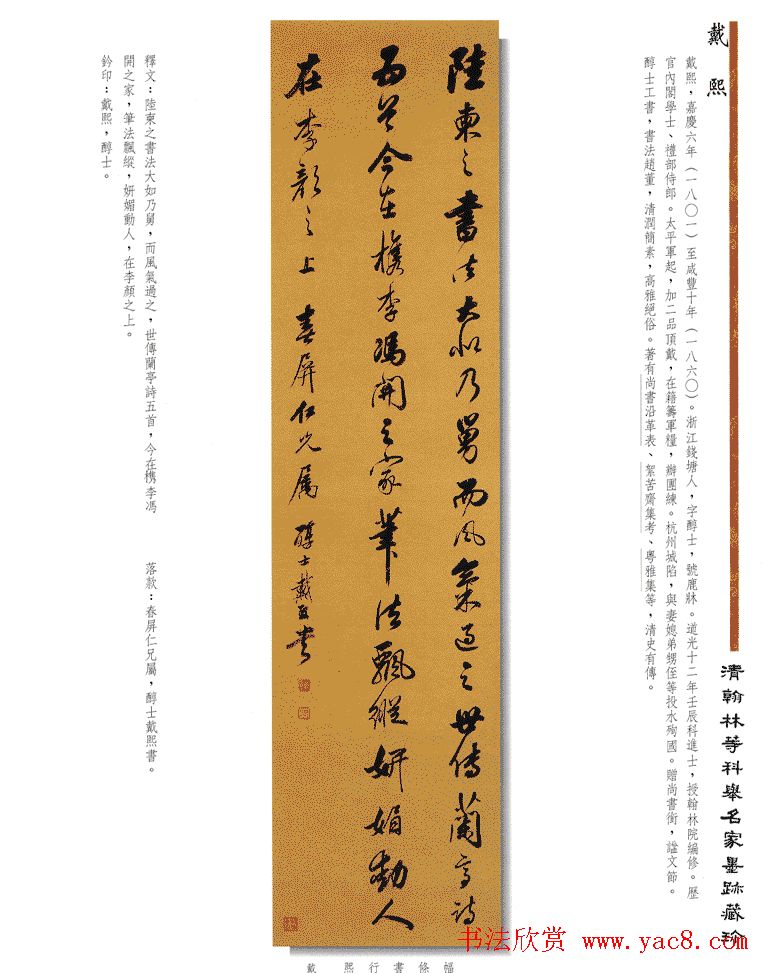 戴熙
清翰林等科舉名家墨跡藏珍
戴熙,嘉慶六年(一八〇一)至咸豐十年(一八六〇)。浙江錢塘人,字醇士,號鹿牀。道光十二年壬辰科進士,授翰林院編修。歷
官內閣學士、禮部侍郎。太平軍起,加二品頂戴,在籍籌軍糧,辦團練。杭州城陷,與妻媳弟甥侄等投水殉國。贈尚書銜,諡文節。
醇士工書,書法趙董,清潤簡素,高雅絕俗。著有尚書沿革表、絮苦齋集考、粵雅集等,清史有傳。
陸東之書法大如乃舅而風氣過之世傳蘭亭詩
五首今在檇李馮開之家筆法飄縱妍媚動人
在李顏之上 春屏仁兄屬 醇士戴熙書
釋文:陸東之書法大如乃舅,而風氣過之,世傳蘭亭詩五首,今在檇李馮
開之家,筆法飄縱,妍媚動人,在李顏之上。
落款:春屏仁兄屬,醇士戴熙書。
鈐印:戴熙,醇士。
戴熙行書條幅
书法欣赏 www.yac8.com